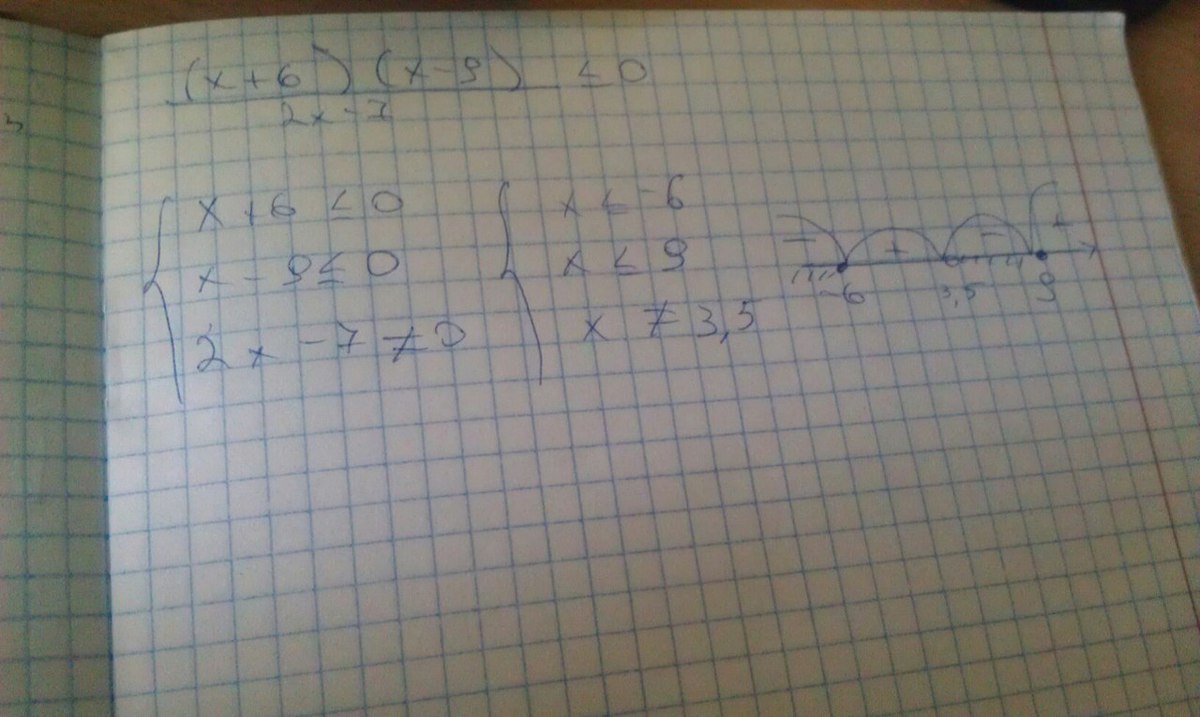 (x+6) (x-9) ≤ 0
2x-7
x+6 ≤ 0
x-9 ≤ 0
2x-7 ≠ 0
x ≤ -6
x ≤ 9
x ≠ 3,5
- + - +
-6 3,5 9